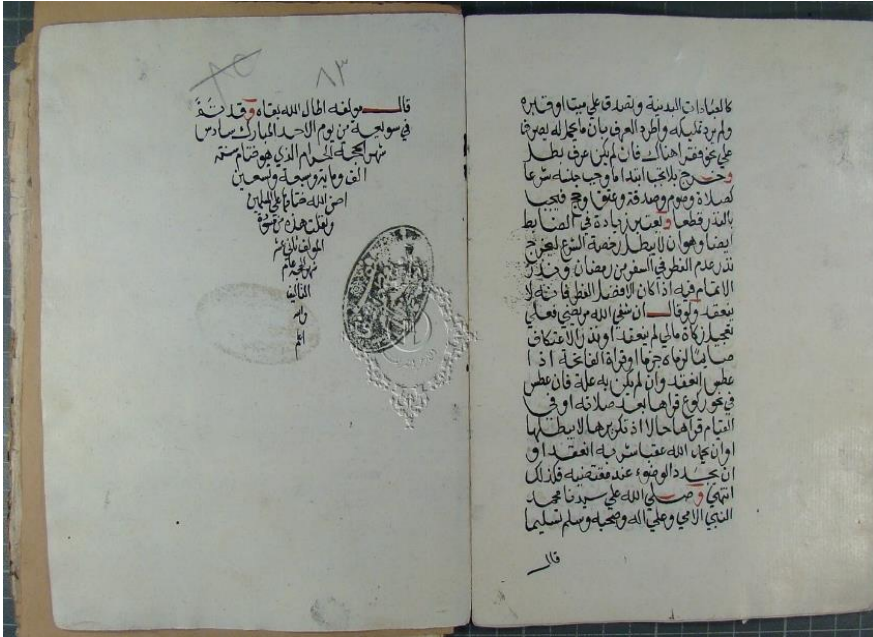 كالعبادات البدنية وتصدق علي ميت او قبره
ولم يرد تمليكه واطرد العرف بان ما يحمل له يصرف
علي نحو فقرا هناك فان لم يكن عرف بطل
وخرج بلا يجب ابتدا ما وجب جنسه شرعا
كصلاة وصوم وصدقة وعتق وحج فتجب
بالنذر قطعا ويعتبر زيادة في الضابط
ايضا وهو ان لا يبطل رخصة الشرع ليخرج
نذر عدم الفطر في السفر من رمضان ونذر
الاتمام فيه اذا كان الافضل الفطر فانه لا
ينعقد ولو قال ان شفي الله مريضي فعلي
تعجيل زكاة مالي لم ينعقد او نذر الاعتكاف
صايما لزماه جزما او قراة الفاتحة اذا
عطس انعقد وان لم يكن به علة فان عطس
في نحو ركوع قراها بعد صلاته او في
القيام قراها حالا اذ تكريرها لا يبطلها
او ان يحمد الله عقب شربه انعقد او
ان يجدد الوضوء عند مقتضيه فكذلك
انتهي وصلي الله علي سيدنا محمد
النبي الامي وعلي اله وصحبه وسلم تسليما
قال
٨٣
قال مولفه اطال الله بقاه وقد تمت
في سويعة من يوم الاحد المبارك سادس
شهر الحجة الحرام الذي هو ختام سنة
الف وماية وسبعة وتسعين
احسن الله ختامها علي المسلمين
ونقلت هذه من مسودة
المولف ثاني عشر
شهر الحجة عام
التاليف
والله
اعلم